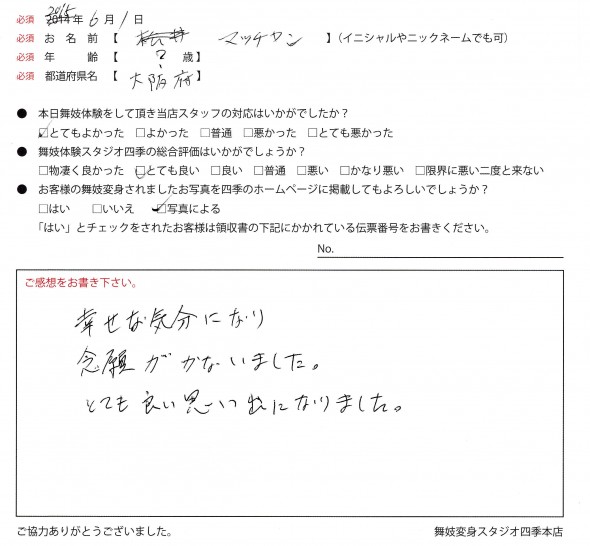 必須 2015年6月1日
必須 お名前【 松井 マッチャン 】(イニシャルやニックネームでも可)
必須 年齢【 ? 歳】
必須 都道府県名【 大阪府 】
● 本日舞妓体験をして頂き当店スタッフの対応はいかがでしたか?
☑とてもよかった □よかった □普通 □悪かった □とても悪かった
● 舞妓体験スタジオ四季の総合評価はいかがでしょうか?
□物凄く良かった ☑とても良い □良い □普通 □悪い □かなり悪い □限界に悪い二度と来ない
● お客様の舞妓変身されましたお写真を四季のホームページに掲載してもよろしいでしょうか?
□はい □いいえ ☑写真による
「はい」とチェックをされたお客様は領収書の下記にかかれている伝票番号をお書きください。
No.
ご感想をお書き下さい。
幸せな気分になり
念願がかないました。
とても良い思い出になりました。
ご協力ありがとうございました。 舞妓変身スタジオ四季本店